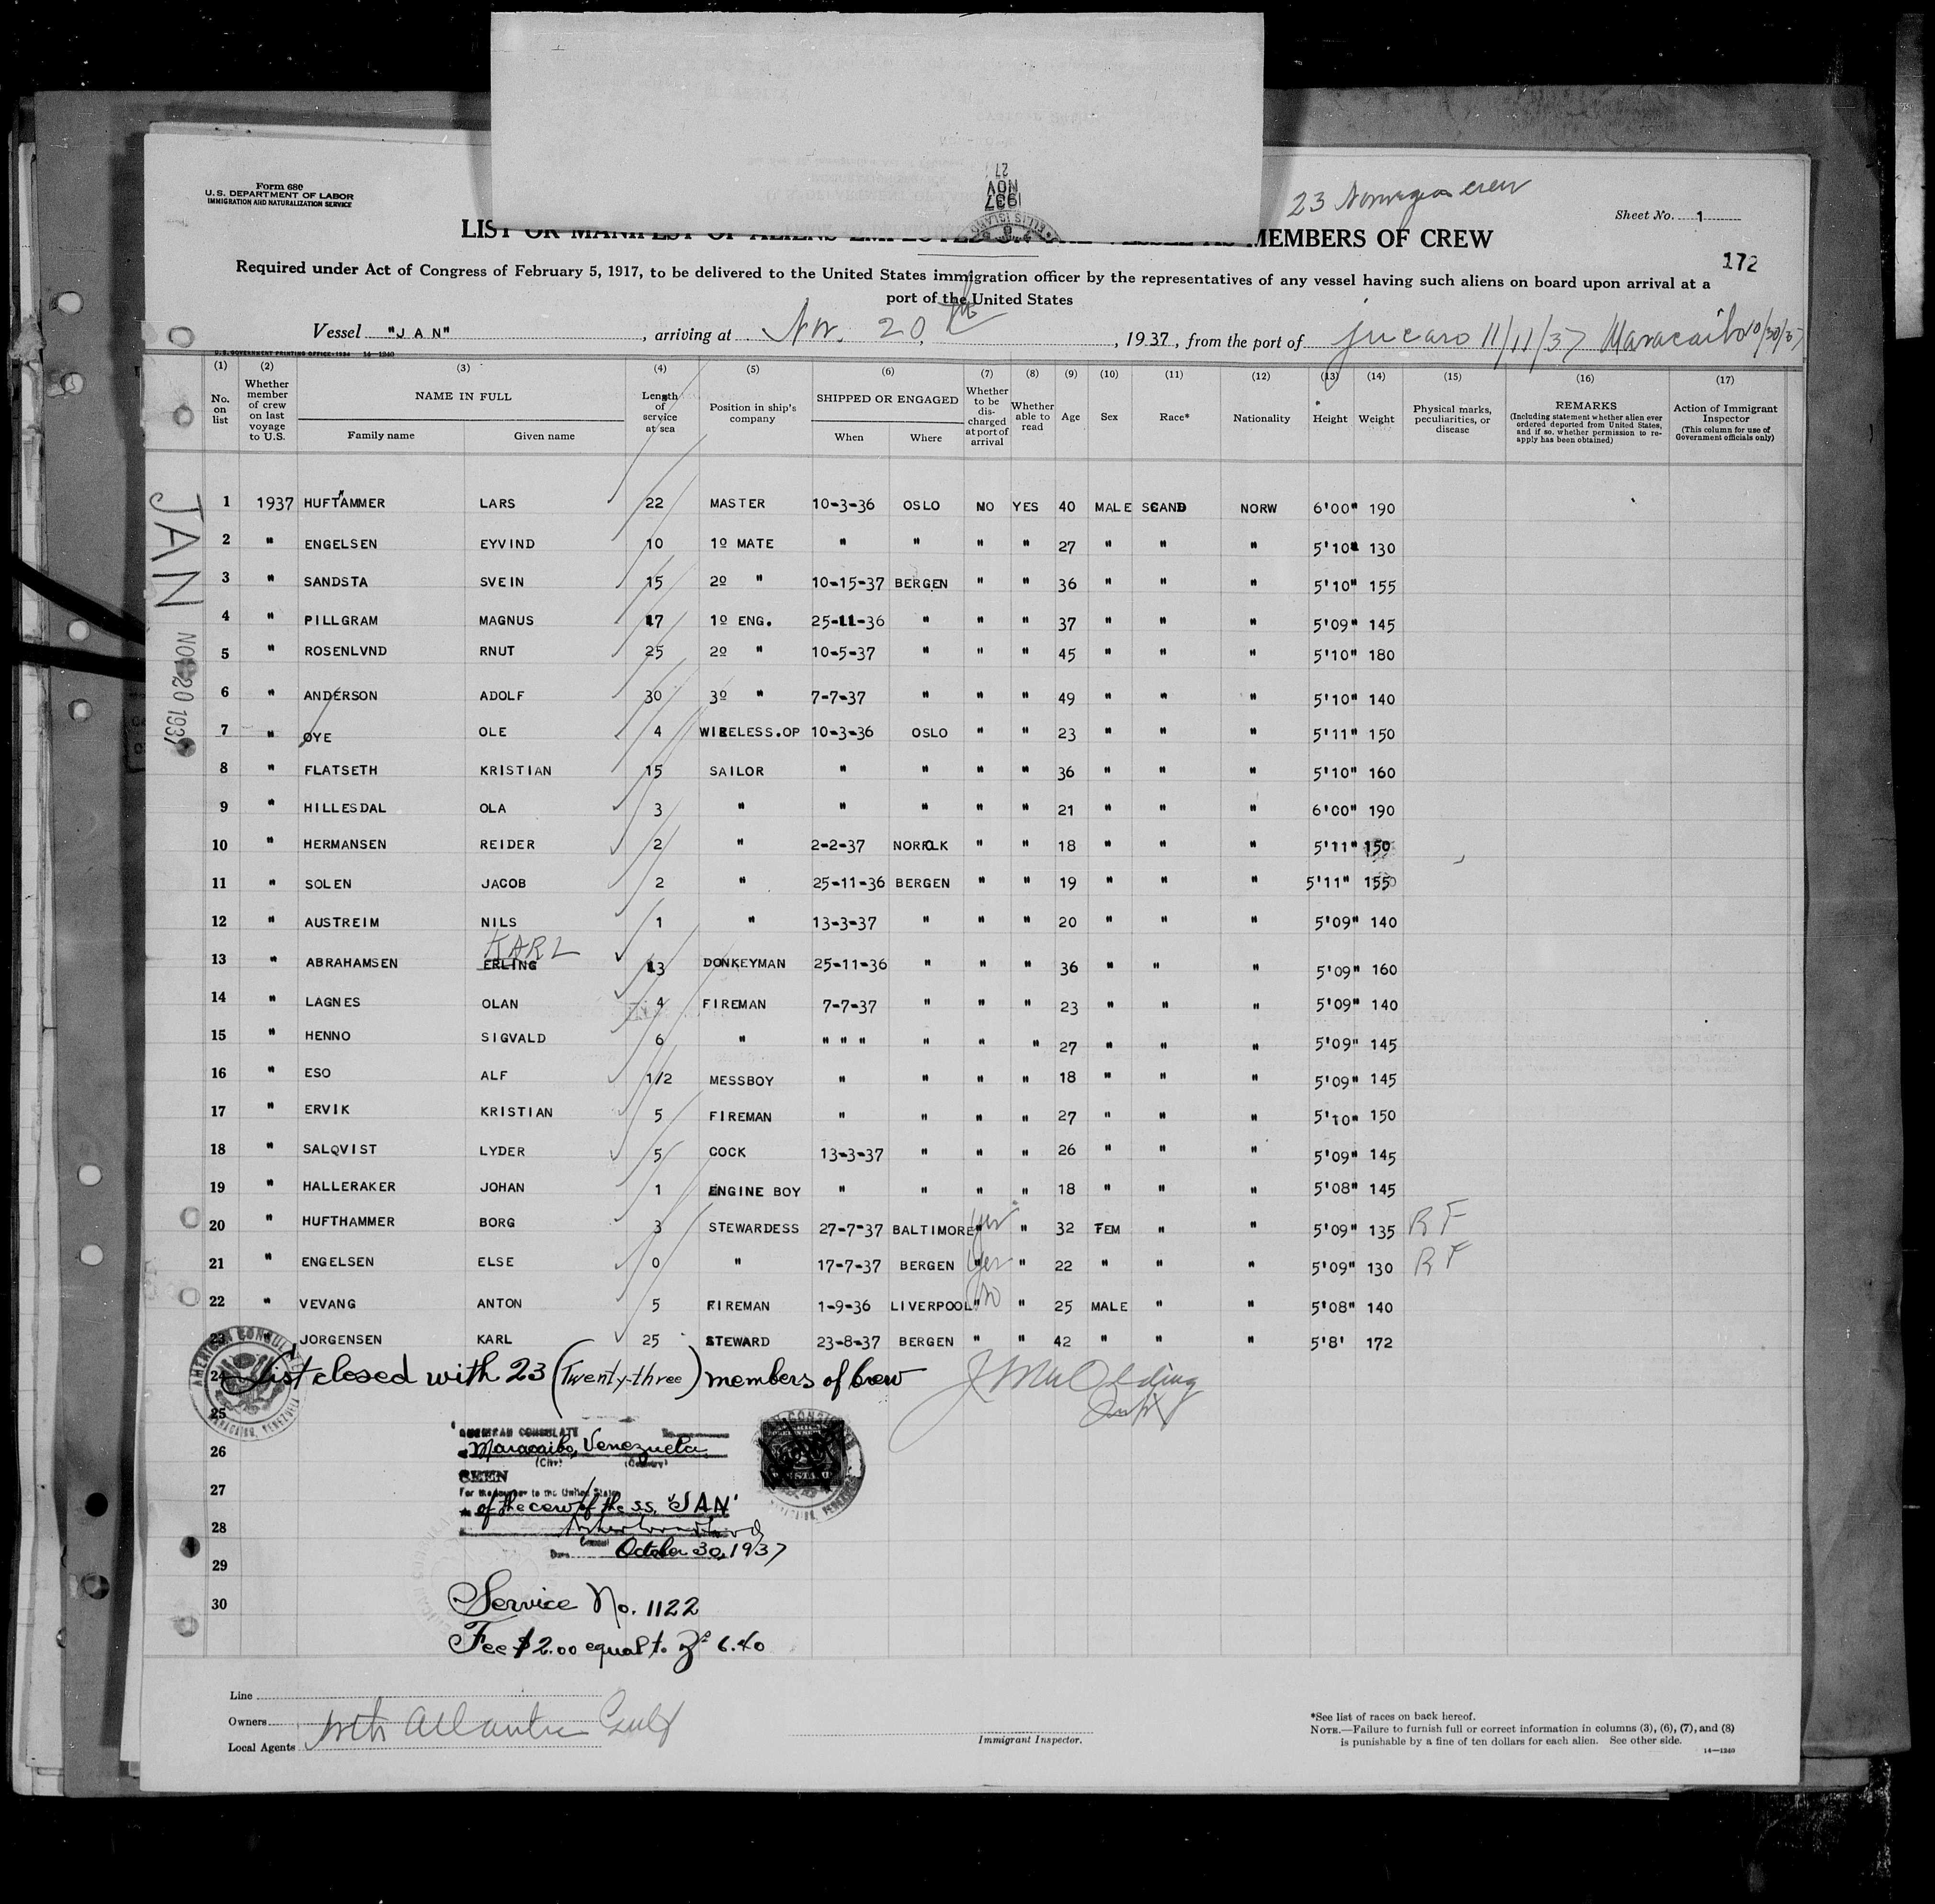 1937
NOV
27
ELLIS ISLAND
Form 680
U.S. DEPARTMENT OF LABOR
IMMIGRATION AND NATURALIZATION SERVICE
23 Norwegian crew
Sheet No. 1
LIST OR MANIFEST OF ALIENS EMPLOYED MEMBERS OF CREW
172
Required under Act of Congress of February 5, 1917, to be delivered to the United States immigration officer by the representatives of any vessel having such aliens on board upon arrival at a
port of the United States
Vessel "JAN", arriving at Nov. 20th, 1937, from the port of Jucaro 11/11/37 Maracaibo 10/30/37
U.S. GOVERNMENT PRINTING OFFICE: 1934 14-1240
(1) (2) (3) (4) (5) (6) (7) (8) (9) (10) (11) (12) (13) (14) (15) (16) (17)
No. on list
Whether member of crew on last voyage to U.S.
NAME IN FULL
Family name Given name
Length of service at sea
Position in ship's company
SHIPPED OR ENGAGED
When Where
Whether to be discharged at port of arrival
Whether able to read
Age Sex Race* Nationality Height Weight
Physical marks, peculiarities, or disease
REMARKS
(Including statement whether alien ever ordered deported from United States, and if so, whether permission to reapply has been obtained)
Action of Immigrant Inspector
(This column for use of Government officials only)
JAN
NOV 20 1937
1 1937 HUFTAMMER LARS 22 MASTER 10-3-36 OSLO NO YES 40 MALE SCAND NORW 6'00" 190
2 " ENGELSEN EYVIND 10 1º MATE " " " " 27 " " " 5'10" 130
3 " SANDSTA SVEIN 15 2º " 10-15-37 BERGEN " " 36 " " " 5'10" 155
4 " PILLGRAM MAGNUS 17 1º ENG. 25-11-36 " " " 37 " " " 5'09" 145
5 " ROSENLVND RNUT 25 2º " 10-5-37 " " " 45 " " " 5'10" 180
6 " ANDERSON ADOLF 30 3º " 7-7-37 " " " 49 " " " 5'10" 140
7 " OYE OLE 4 WIRELESS.OP 10-3-36 OSLO " " 23 " " " 5'11" 150
8 " FLATSETH KRISTIAN 15 SAILOR " " " " 36 " " " 5'10" 160
9 " HILLESDAL OLA 3 " " " " " 21 " " " 6'00" 190
10 " HERMANSEN REIDER 2 " 2-2-37 NORFOLK " " 18 " " " 5'11" 150
11 " SOLEN JACOB 2 " 25-11-36 BERGEN " " 19 " " " 5'11" 155
12 " AUSTREIM NILS 1 " 13-3-37 " " " 20 " " " 5'09" 140
KARL
13 " ABRAHAMSEN ERLING 13 DONKEYMAN 25-11-36 " " " 36 " " " 5'09" 160
14 " LAGNES OLAN 4 FIREMAN 7-7-37 " " " 23 " " " 5'09" 140
15 " HENNO SIGVALD 6 " " " " " " " 27 " " " 5'09" 145
16 " ESO ALF 1/2 MESSBOY " " " " 18 " " " 5'09" 145
17 " ERVIK KRISTIAN 5 FIREMAN " " " " 27 " " " 5'10" 150
18 " SALQVIST LYDER 5 COCK 13-3-37 " " " 26 " " " 5'09" 145
19 " HALLERAKER JOHAN 1 ENGINE BOY " " " " 18 " " " 5'08" 145
20 " HUFTHAMMER BORG 3 STEWARDESS 27-7-37 BALTIMORE " yes " 32 FEM " " 5'09" 135 RF
21 " ENGELSEN ELSE 0 " 17-7-37 BERGEN " yes " 22 " " " 5'09" 130 RF
22 " VEVANG ANTON 5 FIREMAN 1-9-36 LIVERPOOL " no " 25 MALE " " 5'08" 140
23 " JORGENSEN KARL 25 STEWARD 23-8-37 BERGEN " " 42 " " " 5'8' 172
24 List closed with 23 (Twenty-three) members of crew
25
AMERICAN CONSULATE
MARACAIBO, VENEZUELA
26
AMERICAN CONSULATE
Maracaibo, Venezuela
(City) (Country)
SEEN
27
For the journey to the United States
of the crew of the ss. "JAN"
28
Consul
Date October 30, 1937
29
30
Service No. 1122
Fee $2.00 equal to Bs 6.40
Line
Owners
Local Agents
North Atlantic Gulf
Immigrant Inspector.
*See list of races on back hereof.
NOTE.—Failure to furnish full or correct information in columns (3), (6), (7), and (8)
is punishable by a fine of ten dollars for each alien. See other side.
14—1240